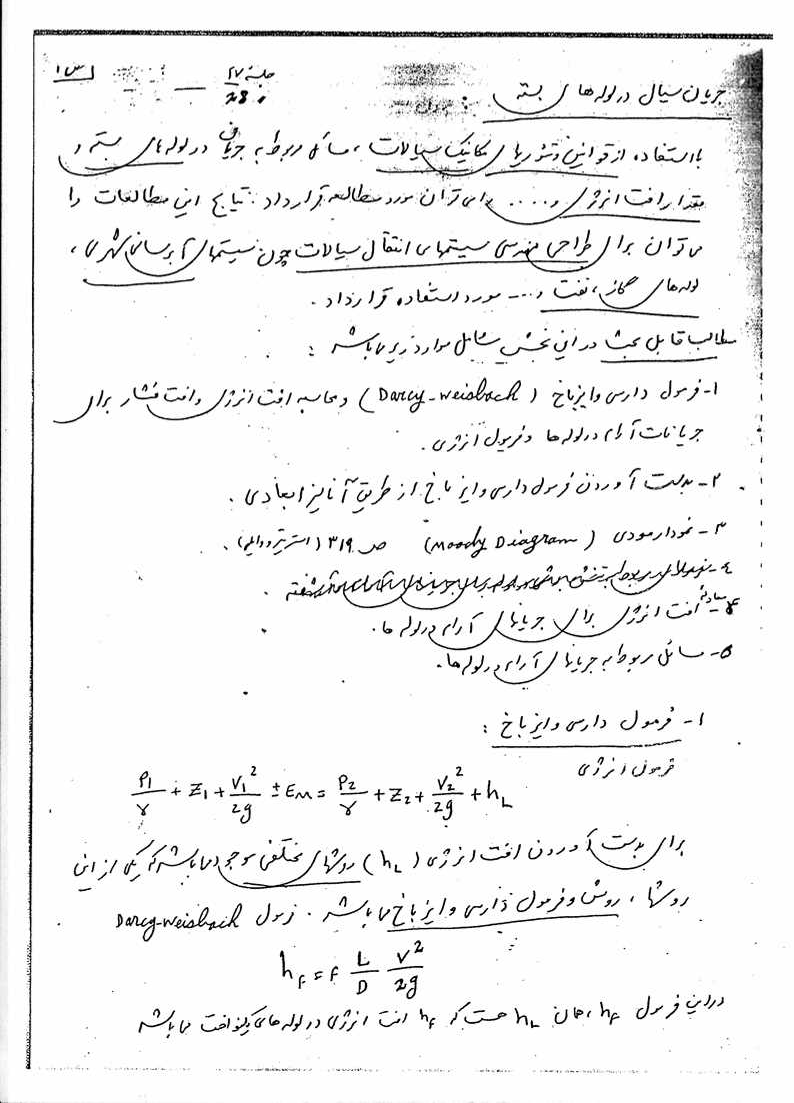 جلسه ۲۷
ص ۱
28
جریان سیال در لوله های بسته
با استفاده از قوانین و تئوریهای مکانیک سیالات، مسائل مربوط به جریان در لوله های بسته و
مقدار افت انرژی و .... را می توان مورد مطالعه قرار داد. نتایج این مطالعات را
می توان برای طراحی مهندسی سیستمهای انتقال سیالات چون سیستمهای آبرسانی شهری،
لوله های گاز، نفت و... مورد استفاده قرار داد.
مطالب قابل بحث در این بخش شامل موارد زیر می باشد:
۱- فرمول دارسی وایزباخ (Darcy-weisbach) و محاسبه افت انرژی و افت فشار برای
جریانات آرام در لوله ها و فرمول انرژی.
۲- بدست آوردن فرمول دارسی وایزباخ از طریق آنالیز ابعادی.
۳- نمودار مودی (Moody Diagram) ص ۳۱۹ (استریتر و وایلی).
۴- معادله افت انرژی برای جریانهای آرام در لوله ها.
۵- مسائل مربوط به جریانهای آرام در لوله ها.
۱- فرمول دارسی وایزباخ:
فرمول انرژی
P1/γ + Z1 + V1²/2g ± EM = P2/γ + Z2 + V2²/2g + hL
برای بدست آوردن افت انرژی (hL) روشهای مختلفی موجود می باشد که یکی از این
روشها، روش و فرمول دارسی وایزباخ می باشد. فرمول Darcy-weisbach
hf = f L/D V²/2g
در این فرمول hf، همان hL هست که hf افت انرژی در لوله های یکنواخت می باشد